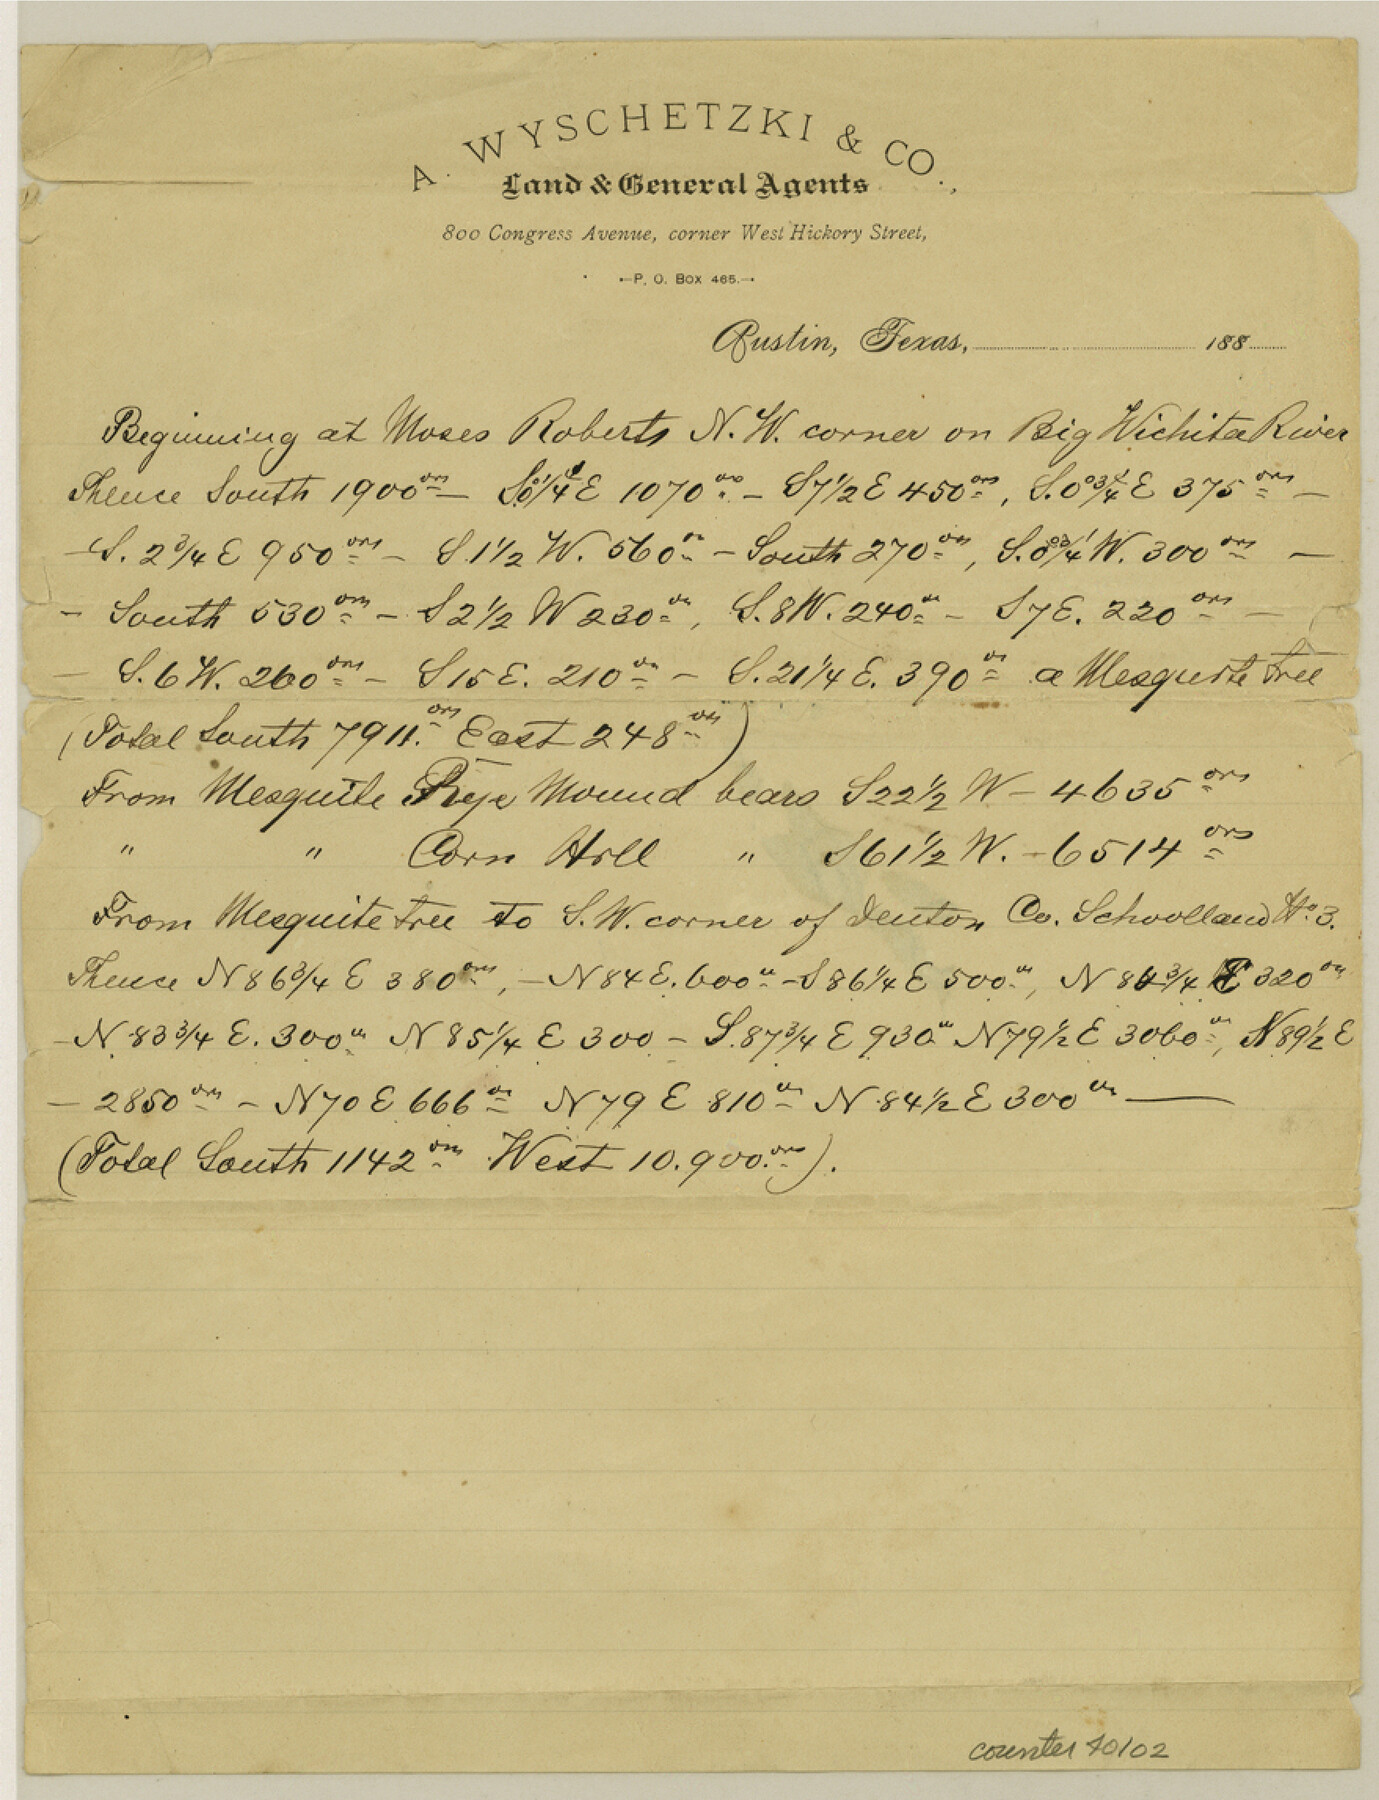 A. WYSCHETZKI & CO.,
Land & General Agents
800 Congress Avenue, corner West Hickory Street,
P. O. Box 465.
Austin, Texas, 188
Beginning at Moses Roberts N.W. corner on Big Wichita River
Thence South 1900 vrs – S. 0 1/4 E 1070 vrs – S 7 1/2 E 450 vrs, S. 0 3/4 E 375 vrs –
– S. 2 3/4 E 950 vrs – S. 1 1/2 W. 560 vrs – South 270 vrs, S. 0 3/4 W. 300 vrs –
– South 530 vrs – S 2 1/2 W 230 vrs, S. 8 W. 240 vrs – S 7 E. 220 vrs –
– S. 6 W. 260 vrs – S 15 E. 210 vrs – S. 21 1/4 E. 390 vrs a Mesquite tree
(Total South 7911. vrs East 248 vrs)
From Mesquite Rye Mound bears S 22 1/2 W – 4635 vrs
" " Corn Hill " S 61 1/2 W. – 6514 vrs
From Mesquite tree to S.W. corner of Denton Co. School land No. 3.
Thence N 86 3/4 E 380 vrs, – N 84 E. 600 vrs – S 86 1/4 E 500 vrs, N 84 3/4 E 320 vrs
– N. 83 3/4 E. 300 vrs N 85 1/4 E 300 – S. 87 3/4 E 930 vrs N 79 1/2 E 3060 vrs, N 89 1/2 E
– 2850 vrs – N 70 E 666 vrs N 79 E 810 vrs N 84 1/2 E 300 vrs –
(Total South 1142 vrs West 10.900. vrs).
counter 40102